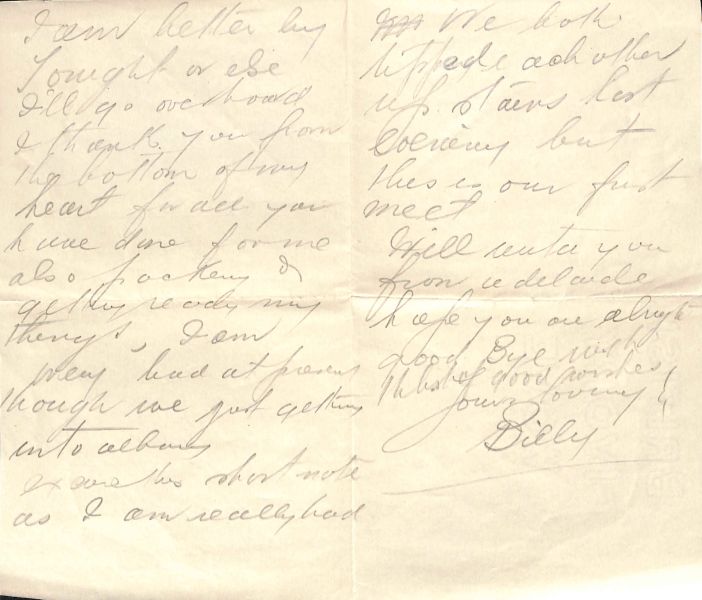 I am better by
Tonight or else
I'll go overboard
I thank you from
the bottom of my
heart for all you
have done for me
also packing &
getting ready my
things, I am
very bad at present
though we just getting
into albany
excuse this short note
as I am really bad
We both
each other
up stairs last
evening but
this is our first
meet
Will write you
from adelaide
hope you are alright
good Bye with
the best of good wishes
yours loving
Billy